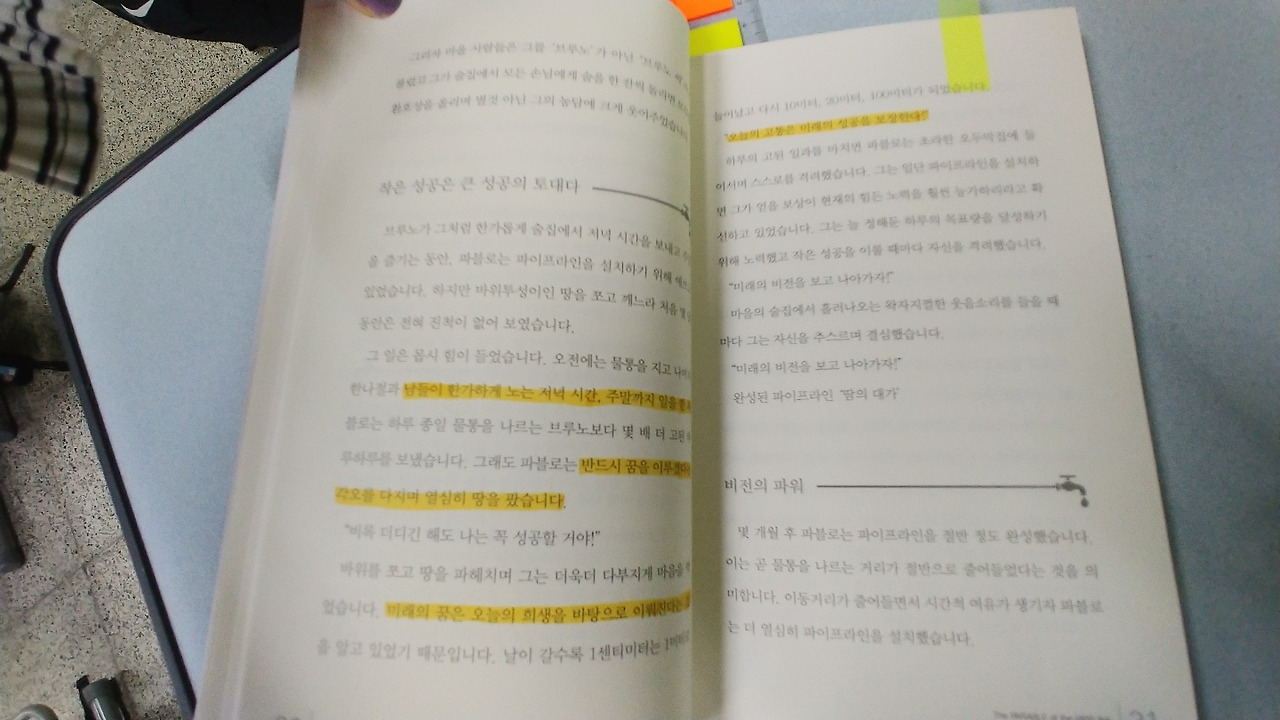 그러자 마을 사람들은 그를 '브루노'가 아닌 '브루노
불렀고 그가 술집에서 모든 손님에게 술을 한 잔씩 돌리면
환호성을 올리며 별것 아닌 그의 농담에 크게 웃어주었습니다
작은 성공은 큰 성공의 토대다
브루노가 그처럼 한가롭게 술집에서 저녁 시간을 보내고
을 즐기는 동안, 파블로는 파이프라인을 설치하기 위해
있었습니다. 하지만 바위투성이인 땅을 쪼고 깨느라 처음 몇
동안은 전혀 진척이 없어 보였습니다.
그 일은 몹시 힘이 들었습니다. 오전에는 물통을 지고
한나절과 남들이 한가하게 노는 저녁 시간, 주말까지 일을
블로는 하루 종일 물통을 나르는 브루노보다 몇 배 더 고된
루하루를 보냈습니다. 그래도 파블로는 반드시 꿈을 이루겠다
각오를 다지며 열심히 땅을 팠습니다.
"비록 더디긴 해도 나는 꼭 성공할 거야!"
바위를 쪼고 땅을 파헤치며 그는 더욱더 다부지게 마음을
었습니다. 미래의 꿈은 오늘의 희생을 바탕으로 이뤄진다는
을 알고 있었기 때문입니다. 날이 갈수록 1센티미터는 1미터로
늘어났고 다시 10미터, 20미터, 100미터가 되었습니다.
"오늘의 고통은 미래의 성공을 보장한다!"
하루의 고된 일과를 마치면 파블로는 초라한 오두막집에 들
어서며 스스로를 격려했습니다. 그는 일단 파이프라인을 설치하
면 그가 얻을 보상이 현재의 힘든 노력을 훨씬 능가하리라고 확
신하고 있었습니다. 그는 늘 정해둔 하루의 목표량을 달성하기
위해 노력했고 작은 성공을 이룰 때마다 자신을 격려했습니다.
"미래의 비전을 보고 나아가자!"
마을의 술집에서 흘러나오는 왁자지껄한 웃음소리를 들을 때
마다 그는 자신을 추스르며 결심했습니다.
"미래의 비전을 보고 나아가자!"
완성된 파이프라인 '땀의 대가'
비전의 파워
몇 개월 후 파블로는 파이프라인을 절반 정도 완성했습니다.
이는 곧 물통을 나르는 거리가 절반으로 줄어들었다는 것을 의
미합니다. 이동거리가 줄어들면서 시간적 여유가 생기자 파블로
는 더 열심히 파이프라인을 설치했습니다.